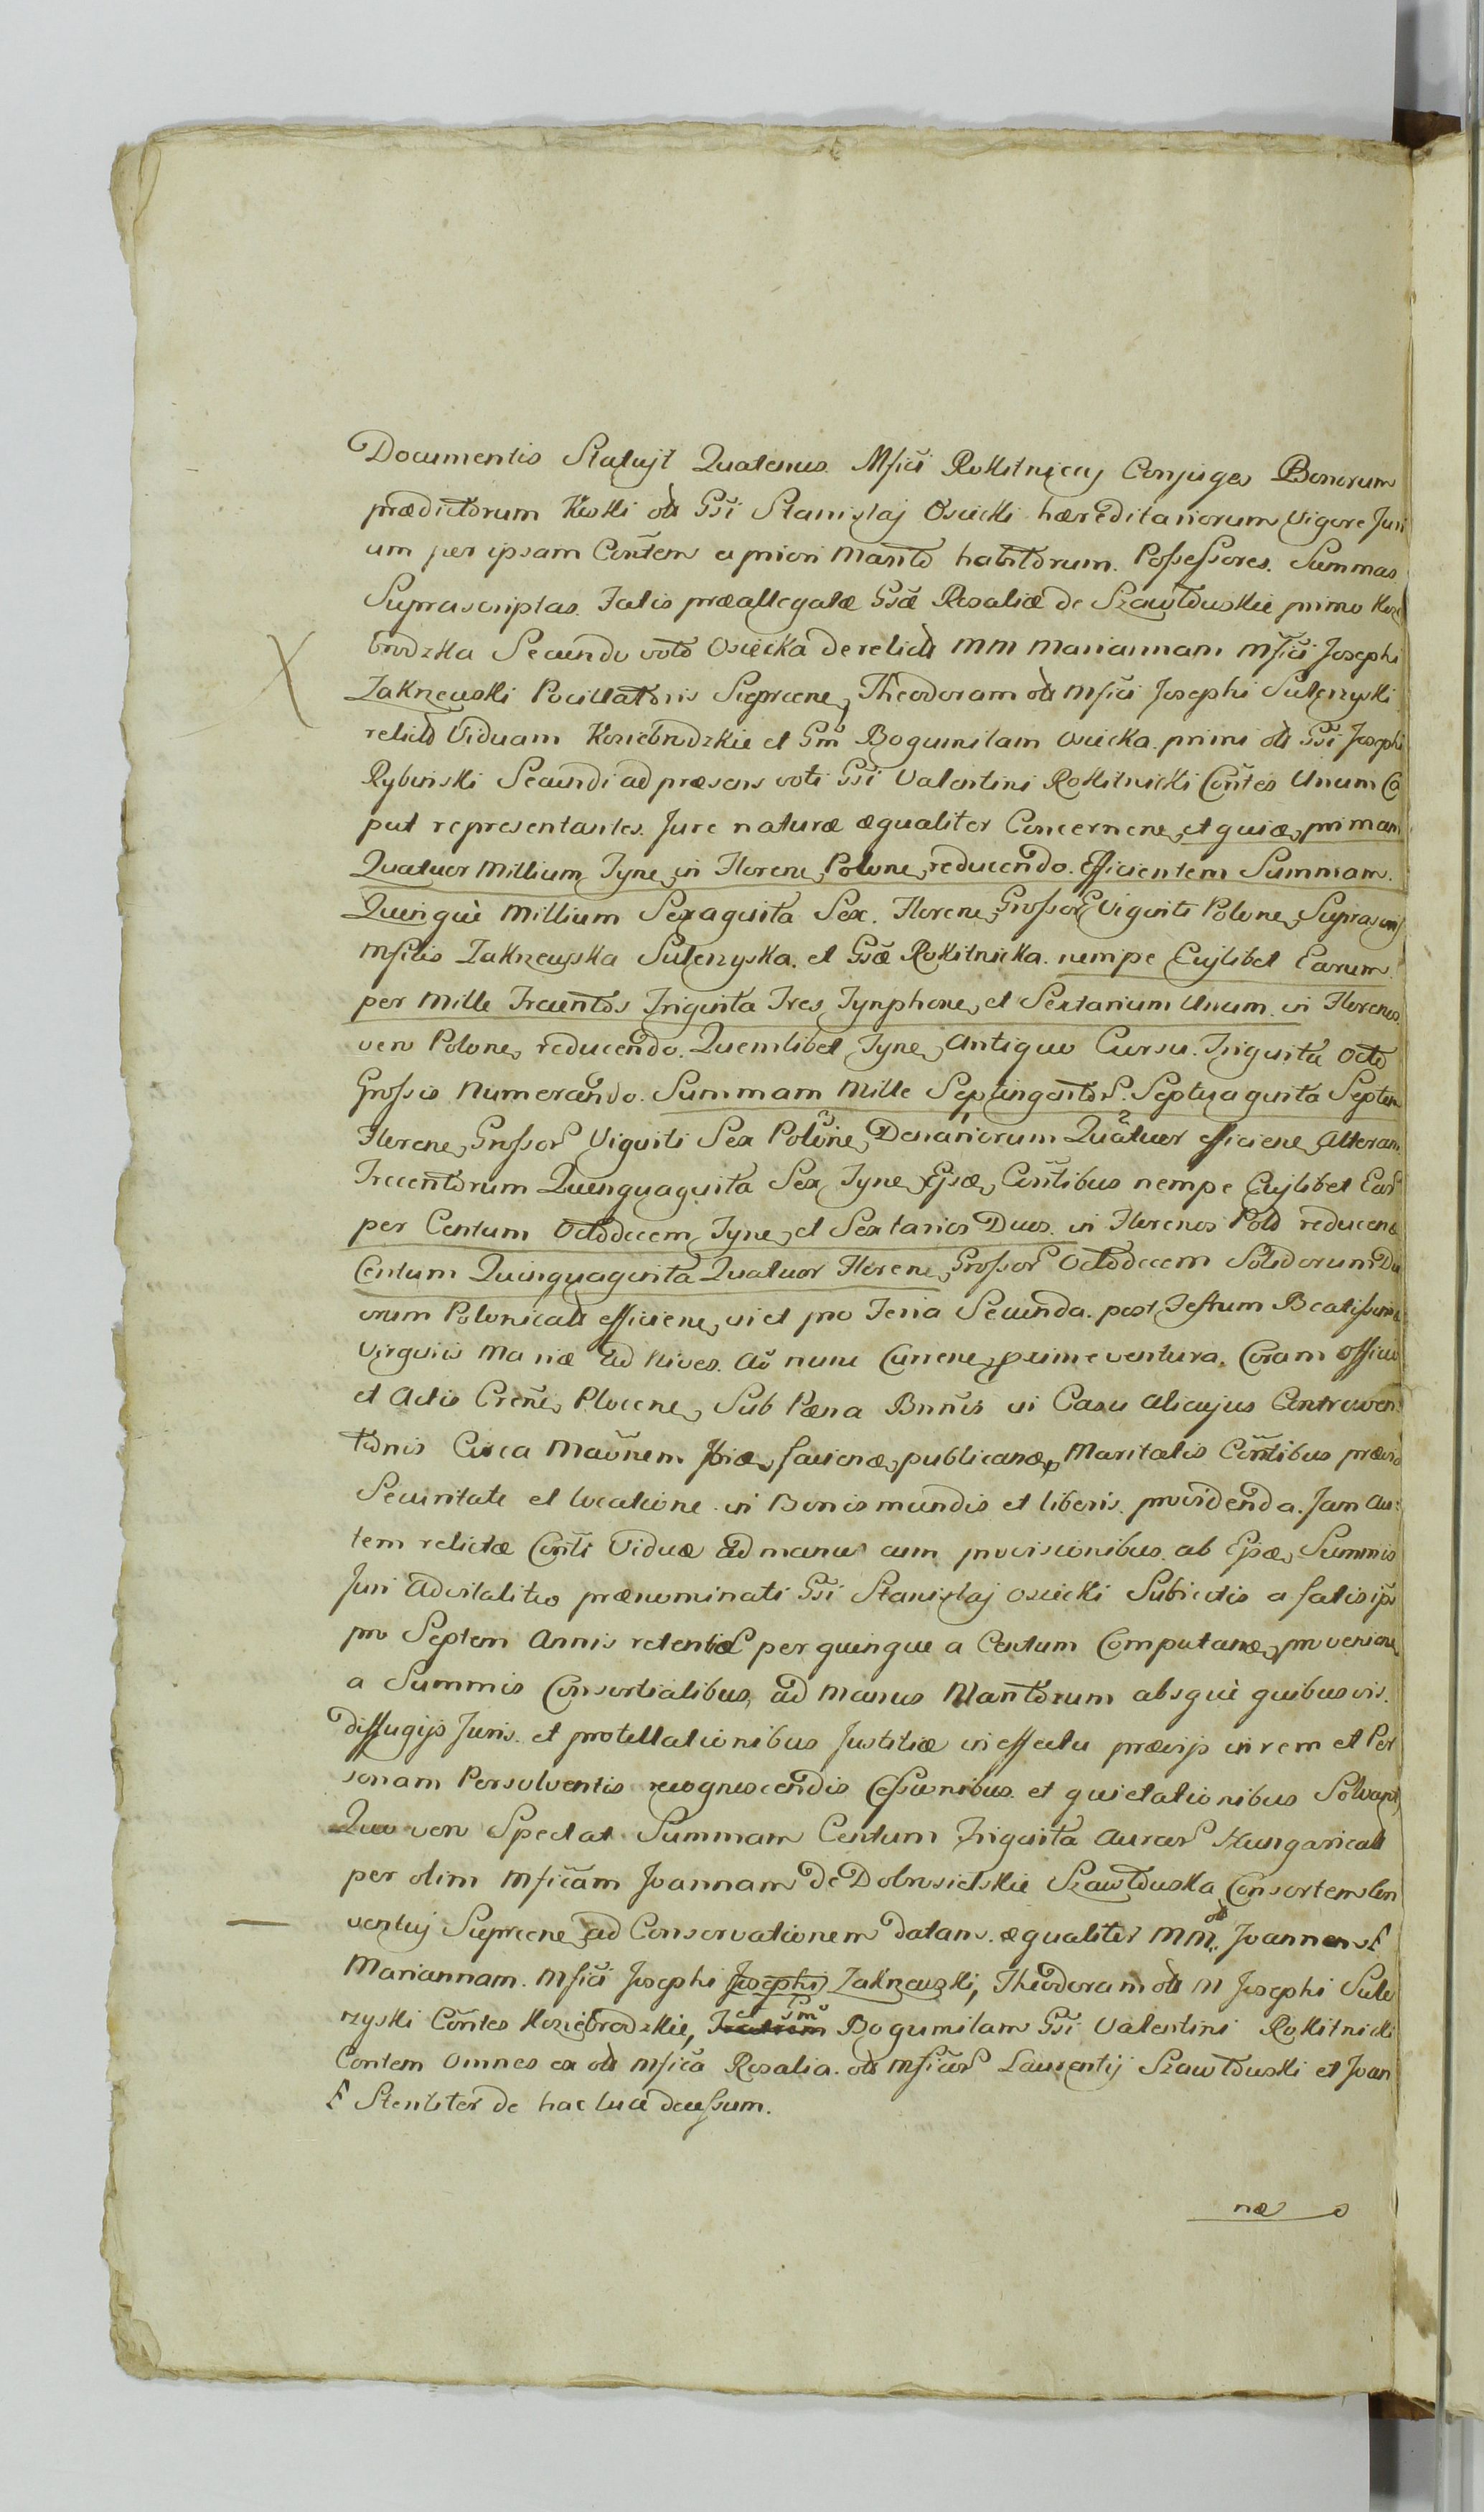 Documentis Statujt Quatenus. Mfici Rokitniccy Conjuges Bonorum
prædictorum Kieski olī Gsi Stanislaj Osiecki hæreditariorum vigore Juri
um per ipsam Contem a priori Marito habitorum. Possessores. Summas
Suprascriptas. Fatis præallegatæ Gsæ Rosaliæ de Szawłowskie primo Kozie
brodzka Secundo voto Osiecka derelictā MM Mariannam Mfici Josephi
Zakrzewski Pocillatoris Sieprcene, Theodoram olī Mfici Josephi Sulerzyski
relictā Viduam Koziebrodzkie et Gm Bogumilam Osiecka. primi olī Gsi Josephi
Rybinski Secundi ad præsens voti Gsi Valentini Rokitnicki Contes Unum Ca
put representantes. Jure naturæ æqualiter Concernene, et quiæ, primam
Quatuor Millium Tyne, in Florene, Polone, reducendo. Efficientem Summam.
Quinquè Millium Sexaginta Sex. Florene, Grossor Viginti Polone, Suprascrip
Mficis Zakrzewska Sulerzyska. et Gsæ Rokitnicka. nempe Cujlibet Earum.
per Mille Trecentos Triginta Tres, Tynphone, et Sextarium Unum. in Florenos.
vero Polone, reducendo. Quemlibet Tyne, Antiquo Cursu. Triginta Octo
Grossis Numerando. Summam Mille Septingentor. Septuaginta Septem
Florene, Grossor Viginti Sex Polone, Denariorum Quatuor efficiene, Alteram
Trecentorum Quinquaginta Sex, Tyne, Ejsæ, Contibus nempe Cujlibet Ear
per Centum Octodecem, Tyne, et Sextarios Duos. in Florenos Polo reducene
Centum Quinquaginta Quatuor Florene, Grossor Octodecem Solidorum Du
orum Polonicalī efficiene, vi et pro Feria Secunda. post Festum Beatissimæ
Virginis Mariæ ad Nives. Ao nunc Currene, prime ventura. Coram Officio
et Actis Crene, Plocene, Sub Pæna Bnnis in Casu alicujus Controven:
tionis Circa faciene, publicanæ, Maritalis Contibus prævio
Securitate et locatione in Bonis mundis et liberis. providenda. Jam au:
tem relictæ Conti Viduæ ad manus cum provisionibus. ab Ejsæ, Summis
Juri advitalitio prænominati Gsi Stanislaj Osiecki Subiectis a fatis ips
pro Septem Annis retentis per quinque a Centum Computanæ, proveniene
a Summis Consortialibus, ad Manus Maritorum absquè quibusvis.
diffugijs Juris. et protellationibus Justitiæ in effectu prævijs in rem et Per
sonam Persolventis recognoscendis Cessionibus. et quietationibus Solvant,
Quo vero Spectat Summam Centum Triginta Aureor Hungaricalī
per olim Mficam Joannam de Dobrosielskie Szawłowska Consortem Con
ventuj Sieprcene, ad Conservationem datam. æqualiter MM. olī Joannem F
Mariannam. Mfici Josephi Josephi Zakrzewski, Theodoram olī M Josephi Sule
rzyski Contes Koziebrodzkie, et Gm Bogumilam Gsi Valentini Rokitnicki
Contem Omnes ex olī Mfica Rosalia. olī Mficor Laurentij Szawłowski et Joan
F Steriliter de hac luce decessum.
næ